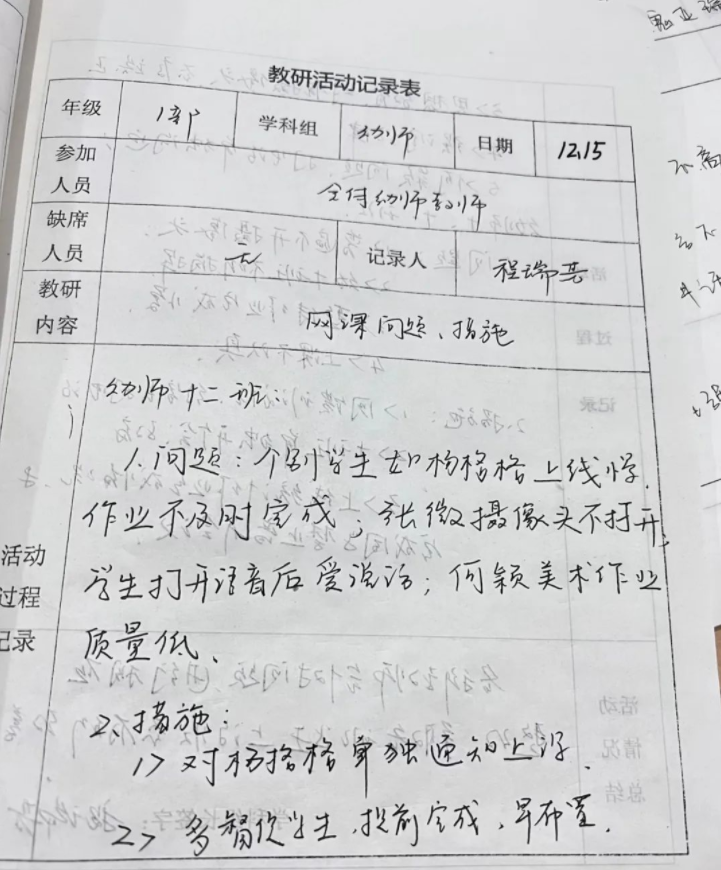 教研活动记录表
年级 1部 学科组 幼师 日期 12.15
参加人员 全体幼师教师
缺席人员 无 记录人 程瑞芸
教研内容 网课问题、措施
幼师十二班:
1.问题:个别学生如杨格格上线慢.
作业不及时完成;张微摄像头不打开;
学生打开语音后爱说话;何颖美术作业
质量低、
2、措施:
1> 对杨格格单独通知上课.
2> 多督促学生,提前完成,早布置.
活动
过程
记录